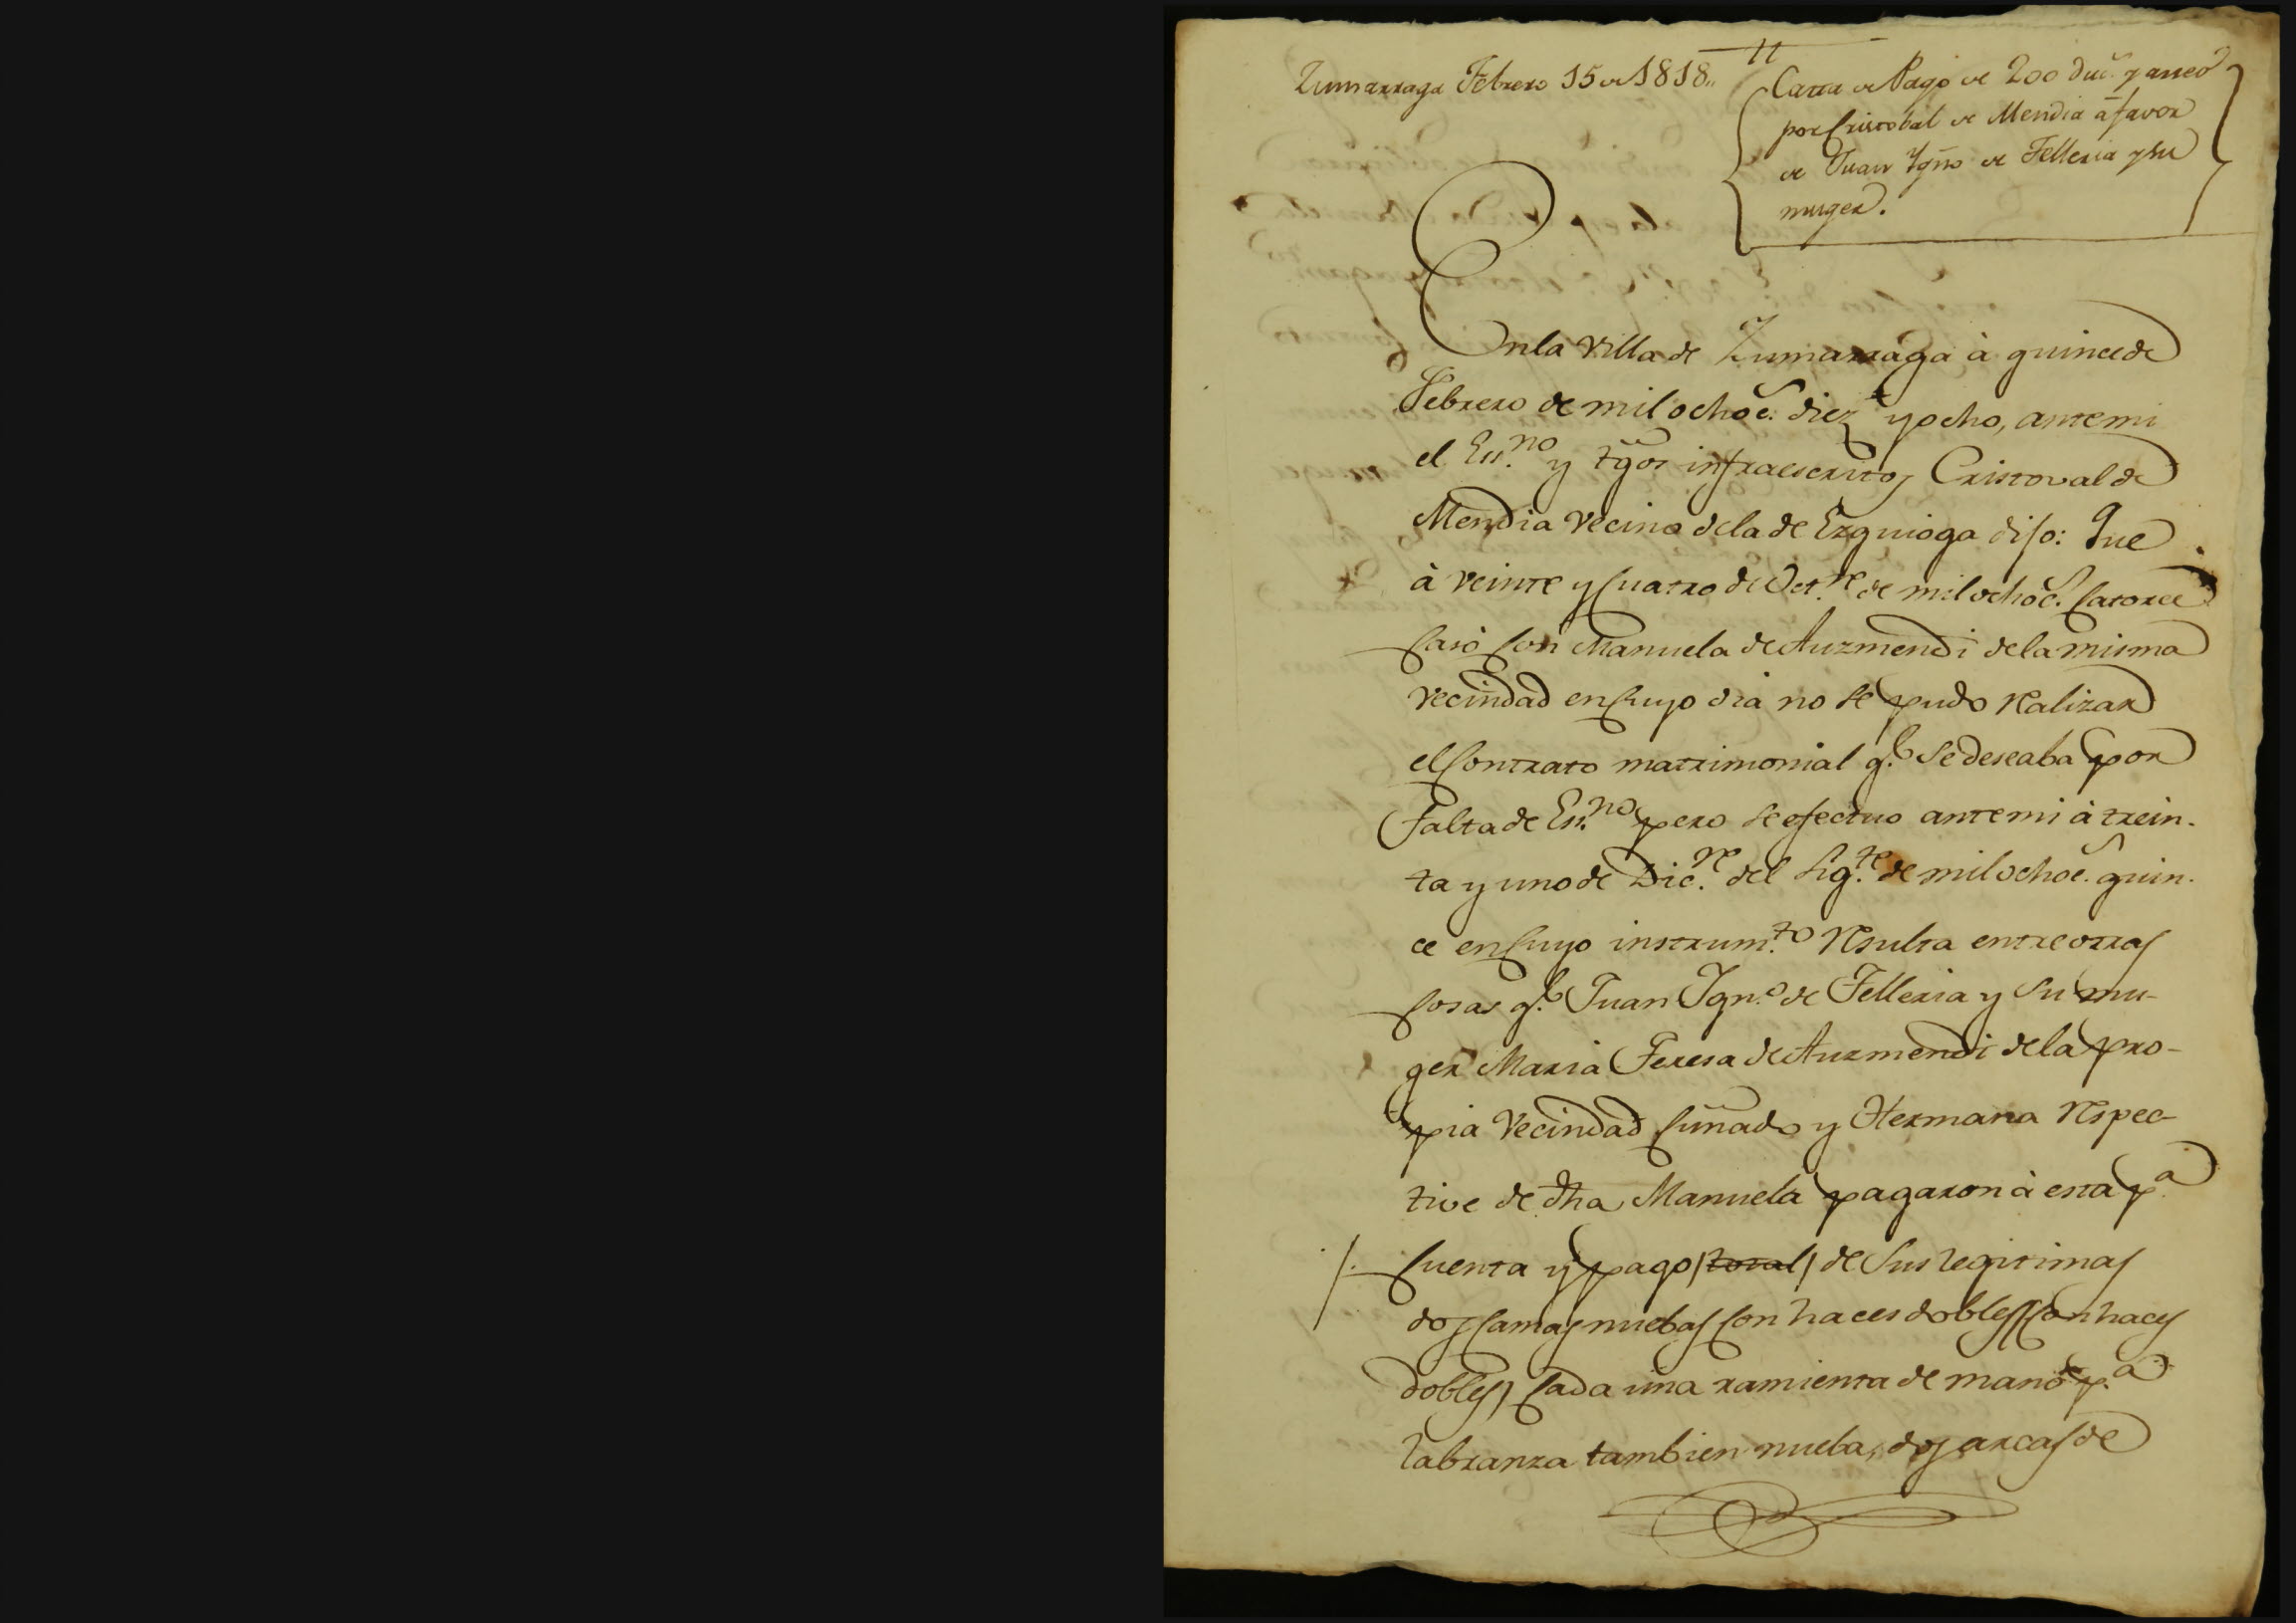 11
Zumarraga Febrero 15 de 1818..
Carta de Pago de 200 duc.s y arreo
por Cristobal de Mendia à favor
de Juan Ygño de Telleria y su
muger.
En la Villa de Zumarraga à quince de
Febrero de mil ochoc.s diez y ocho, ante mi
el Es.no y tgos infraescritos Cristoval de
Mendia Vecino de la de Ezquioga dijo: Que
à veinte y cuatro de Oct.re de mil ochoc.s Catorce
Casò Con Manuela de Auzmendi de la misma
Vecindad en Cuyo dia no se pudo realizar
el Contrato matrimonial q.e Se deseaba por
falta de Es.no pero se efectuo ante mi à trein-
ta y uno de Dic.re del Sig.te de mil ochoc.s quin-
ce en Cuyo instrum.to resulta entre otras
Cosas q.e Juan Ygn.o de Telleria y Su mu-
ger Maria Teresa de Auzmendi de la pro-
pia Vecindad Cuñado y Hermana respec-
tive de dha Manuela pagaron à esta p.a
/. Cuenta y pago (total) de Sus legitimas
dos Camas nuebas Con haces dobles (Con haces
dobles) Cada una ramienta de mano p.a
labranza tambien nueba, dos arcas de